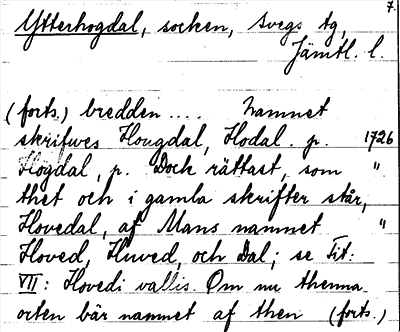 7.
Ytterhogdal, socken, Svegs tg,
Jämtl. l.
(forts.) bredden .... Namnet
skrifwes Hougdal, Hodal. p. 1726
Hogdal, p. Dock rättast, som "
thet och i gamla skrifter står,
Hovedal, af Mans namnet "
Hoved, Huved, och Dal; se Tit:
VII: Hovedi vallis. Om nu thenna
orten bär namnet af then (forts.)